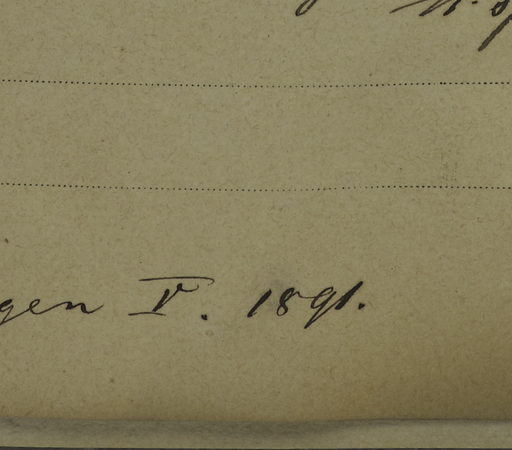 gen V. 1891.